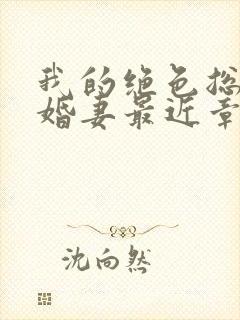 我的绝色总
婚妻最近章
沈向然